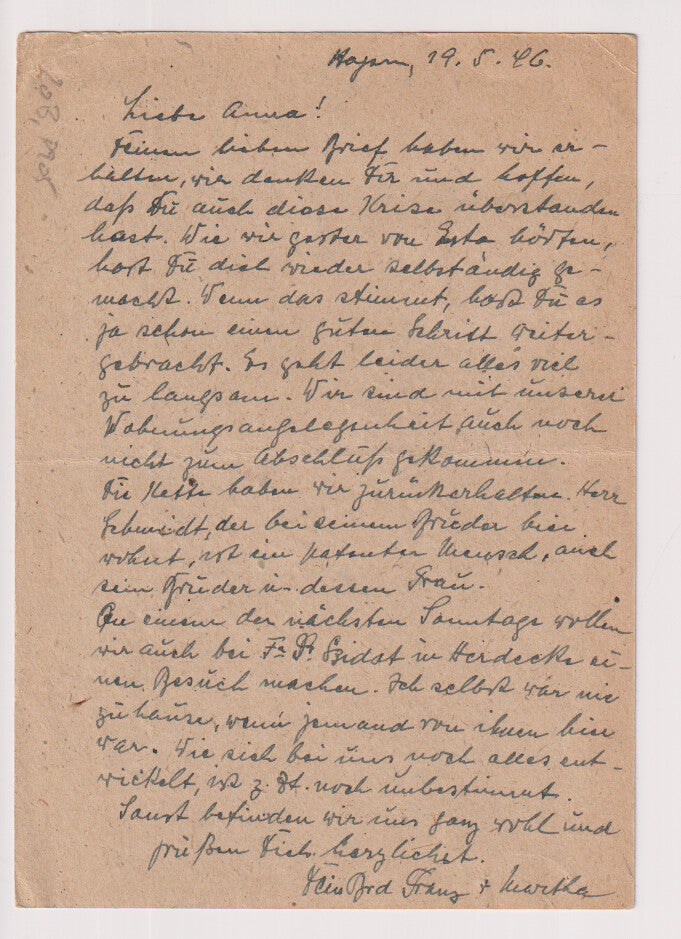 Hagen, 19. 5. 46.
Liebe Anna!
Deinen lieben Brief haben wir er-
halten, wir danken Dir und hoffen,
daß Du auch diese Krise überstanden
hast. Wie wir gestern von Esta hörten,
hast Du dich wieder selbständig ge-
macht. Wenn das stimmt, hast Du es
ja schon einen guten Schritt weiter-
gebracht. Es geht leider alles viel
zu langsam. Wir sind mit unserer
Wohnungsangelegenheit auch noch
nicht zum Abschluß gekommen.
Die Kette haben wir zurückerhalten. Herr
Schmidt, der bei seinem Bruder hier
wohnt, ist ein patenter Mensch, auch
sein Bruder u. dessen Frau.
An einem der nächsten Sonntage wollen
wir auch bei Szidat in Herdecke ei-
nen Besuch machen. Ich selbst war nie
zuhause, wenn jemand von ihnen hier
war. Wie sich bei uns noch alles ent-
wickelt, ist z. Zt. noch unbestimmt.
Sonst befinden wir uns ganz wohl und
grüßen Dich herzlichst.
Dein Brd Franz + Martha